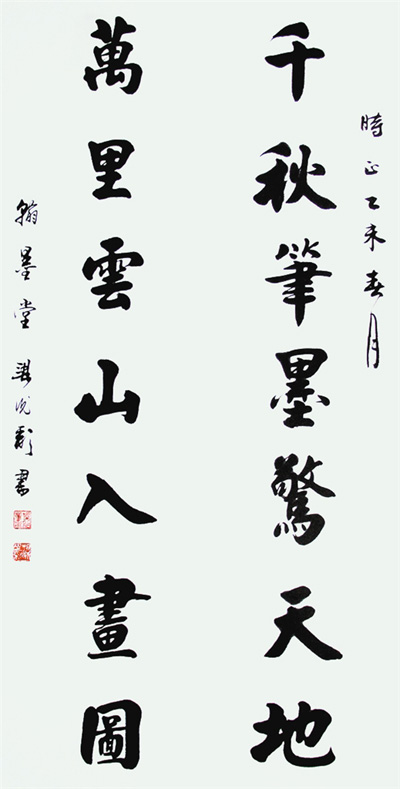 時正乙未春月
千秋筆墨驚天地
萬里雲山入畫圖
翰墨堂 書